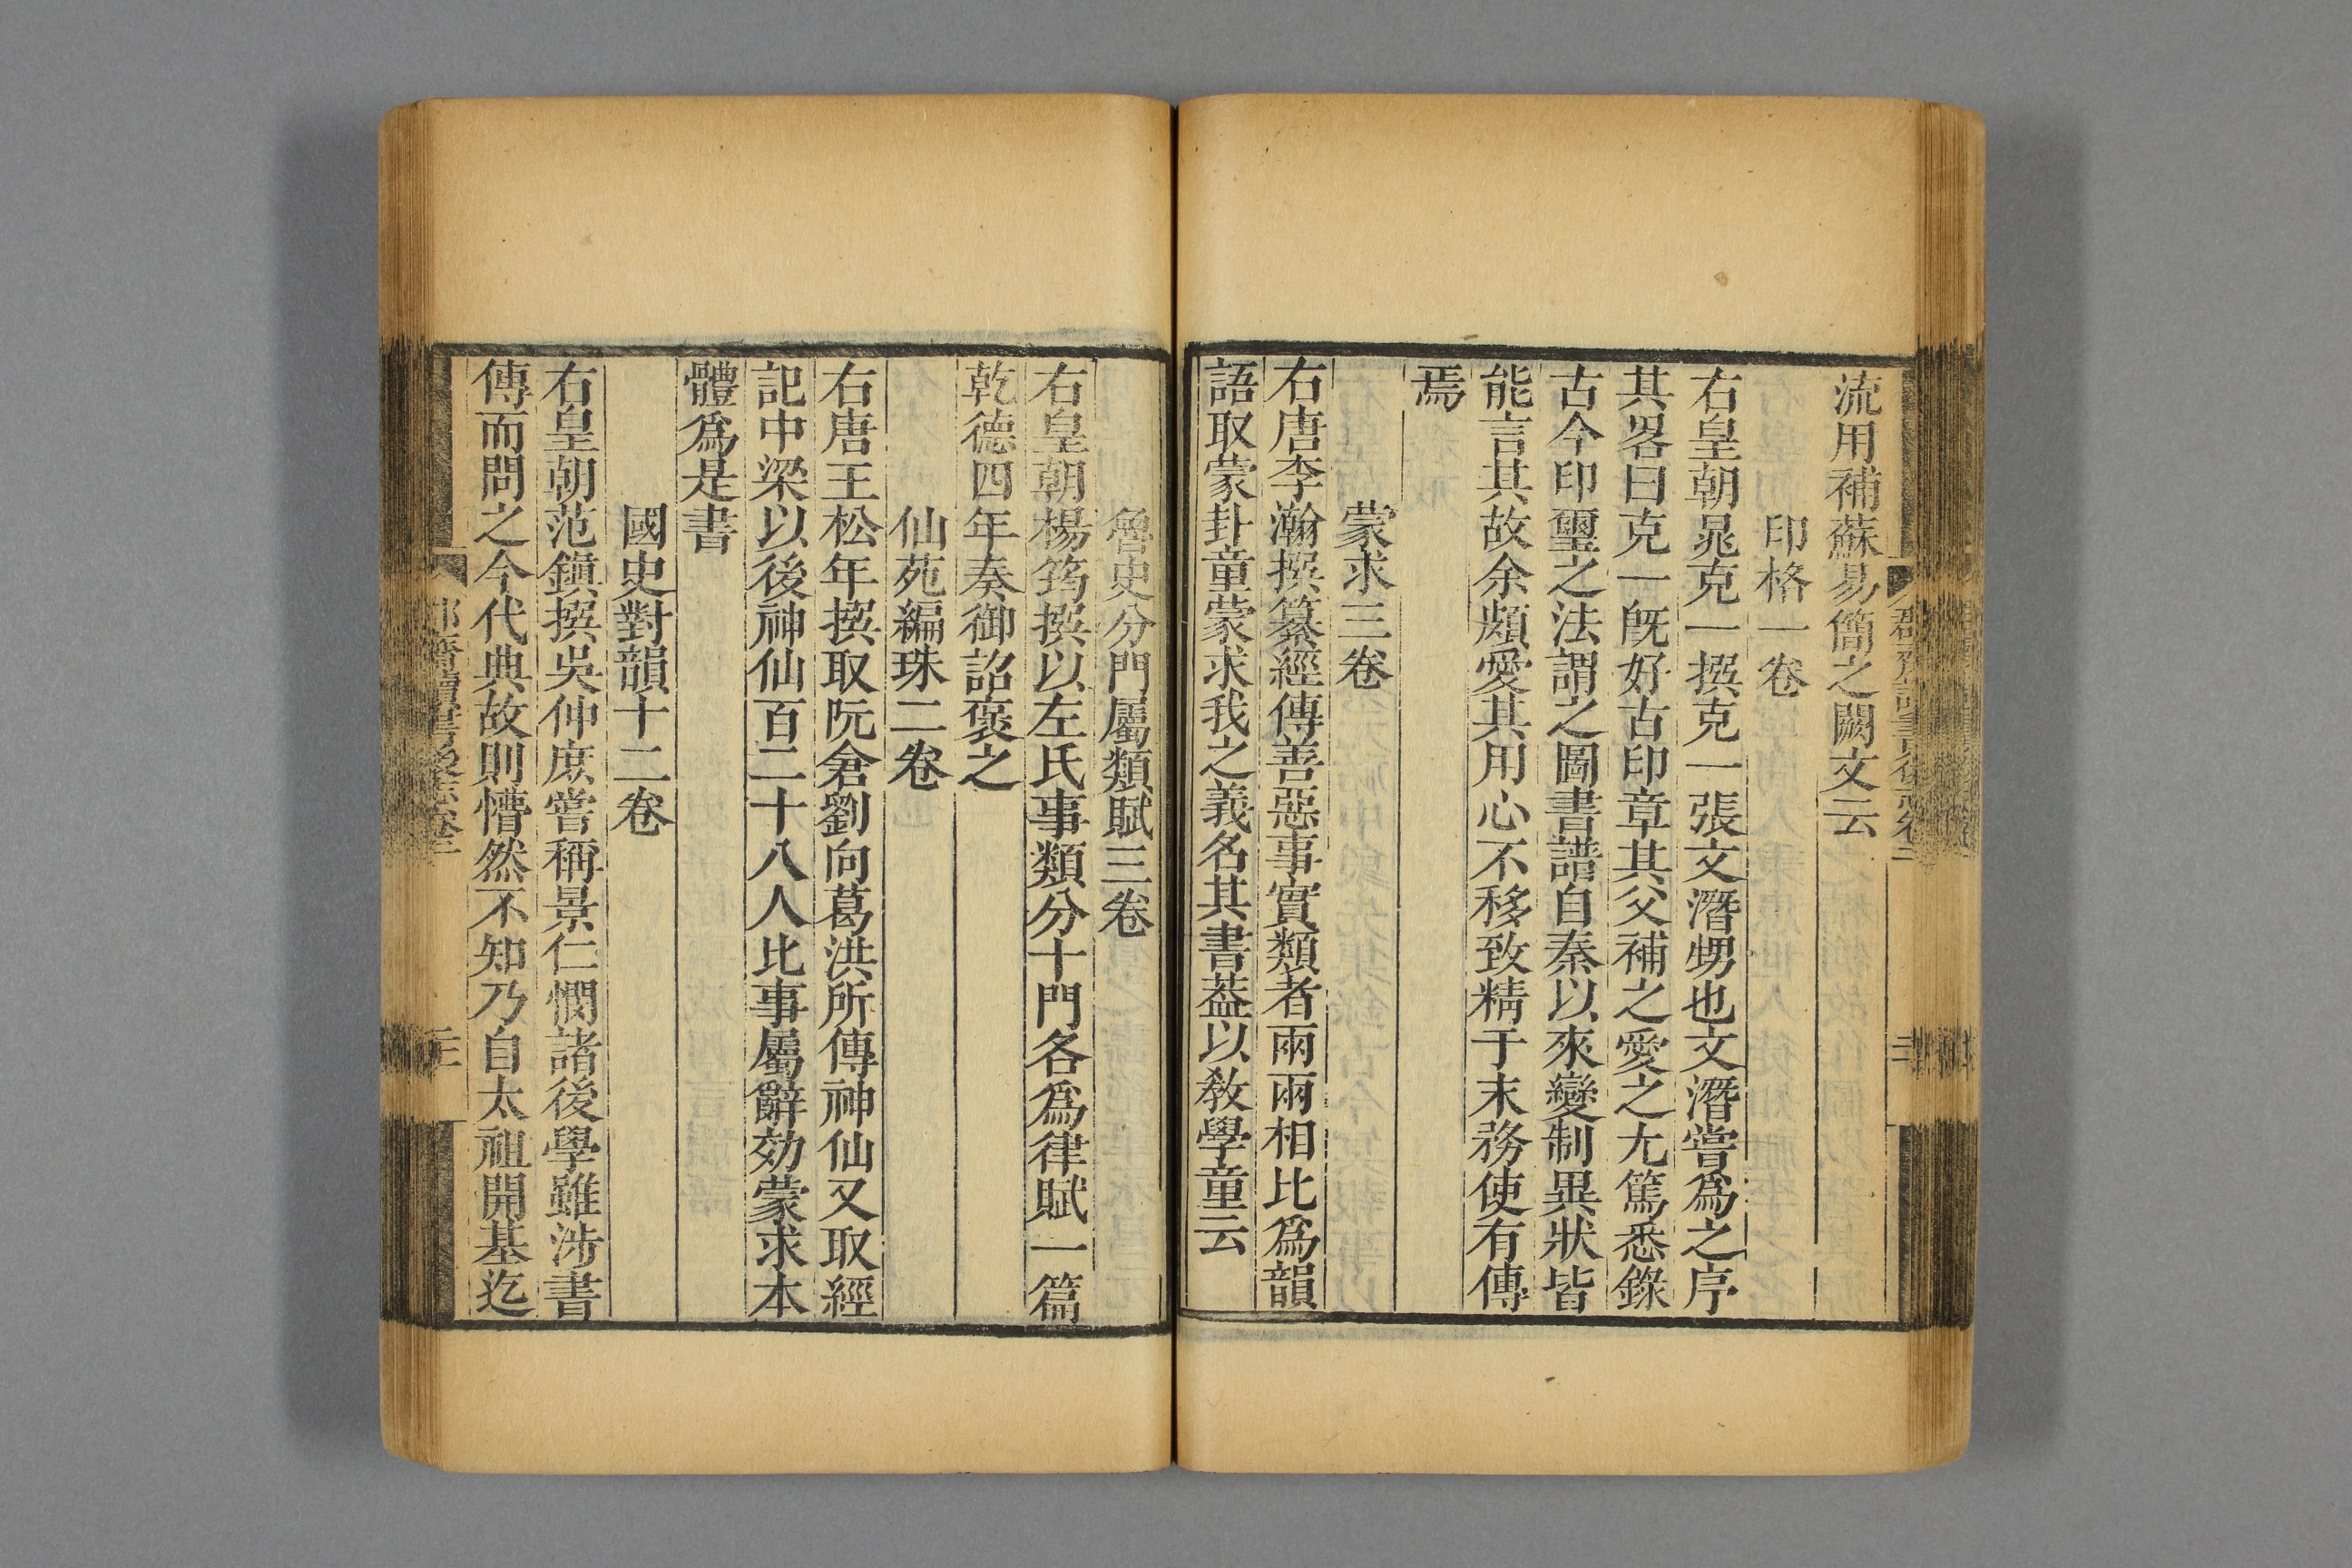 流用補蘇易簡之闕文云
印格一卷
右皇朝晁克一撰克一張文潛甥也文潛嘗爲之序
其畧曰克一旣好古印章其父補之愛之尢篤悉錄
古今印璽之法謂之圖書譜自秦以來變制異狀皆
能言其故余頗愛其用心不移致精于末務使有傳
焉
蒙求三卷
右唐李瀚撰纂經傳善惡事實類者兩兩相比爲韻
語取蒙卦童蒙求我之義名其書葢以教學童云
魯史分門屬類賦三卷
右皇朝楊筠撰以左氏事類分十門各爲律賦一篇
乾德四年奏御詔褒之
仙苑編珠二卷
右唐王松年撰取阮倉劉向葛洪所傳神仙又取經
記中梁以後神仙百二十八人比事屬辭効蒙求本
體爲是書
國史對韻十二卷
右皇朝范鎭撰吳仲庶嘗稱景仁憫諸後學雖涉書
傳而問之今代典故則懵然不知乃自太祖開基迄